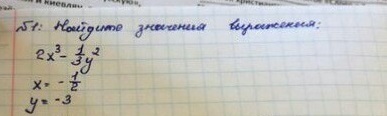 №1: Найдите значения выражения:
2x³ - 1/3 y²
x = - 1/2
y = -3